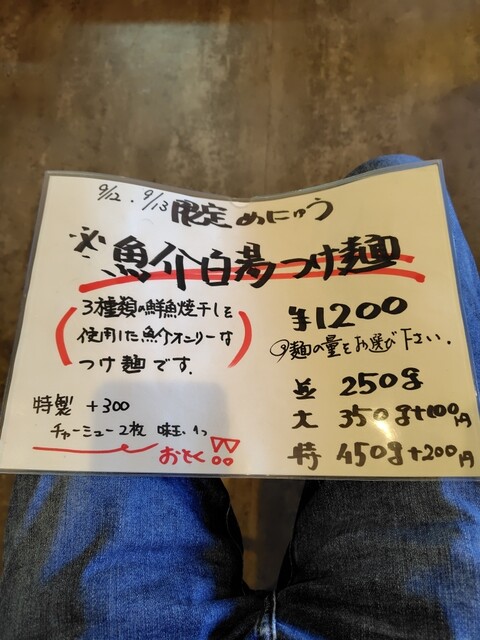 9/12 . 9/13 限定めにゅう
※魚介白湯つけ麺
3種類の鮮魚焼干しを
使用した魚介オンリーな
つけ麺です.
¥1200
麺の量をお選び下さい.
並 250g
大 350g+100円
特 450g+200円
特製 +300
チャーシュー2枚 味玉1つ
おとく!!